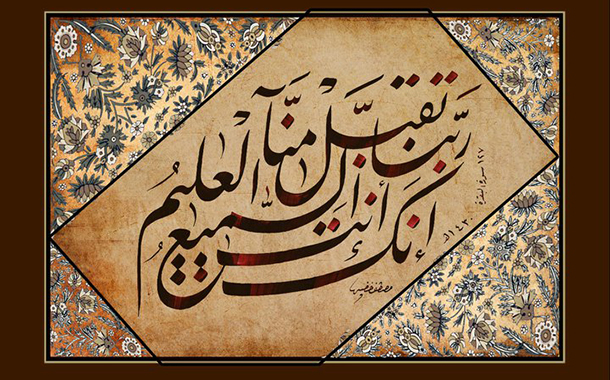 ربنا تقبل منا
انك أنت السميع العليم
١٢٧ سورة البقرة